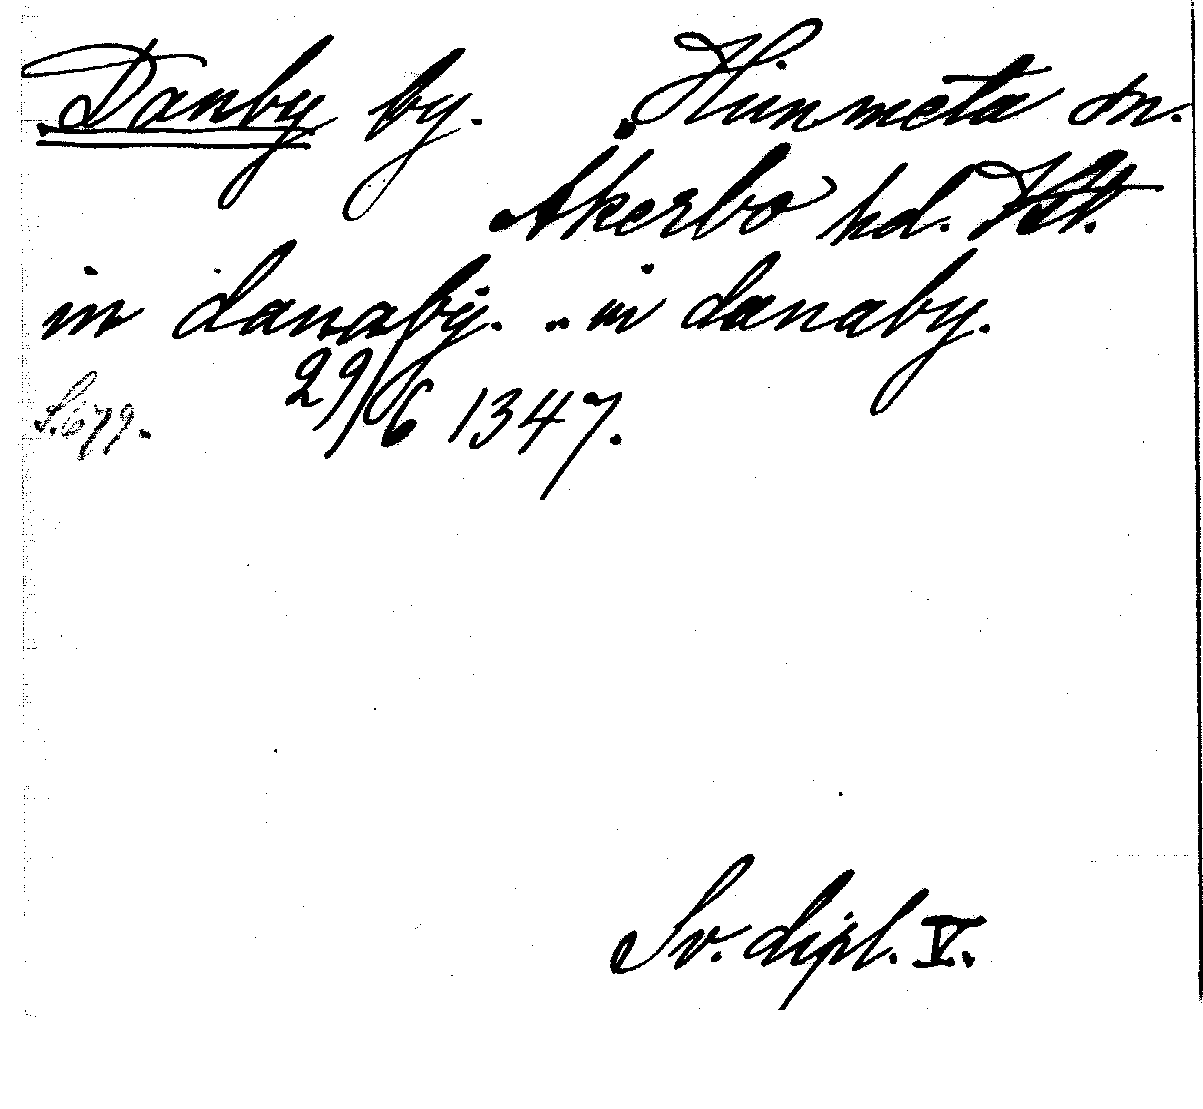 Danby by. Himmeta sn.
Åkerbo hd. Vstm.
in danaby. .. in danaby.
S. 679. 29/6 1347.
Sv. dipl. V.